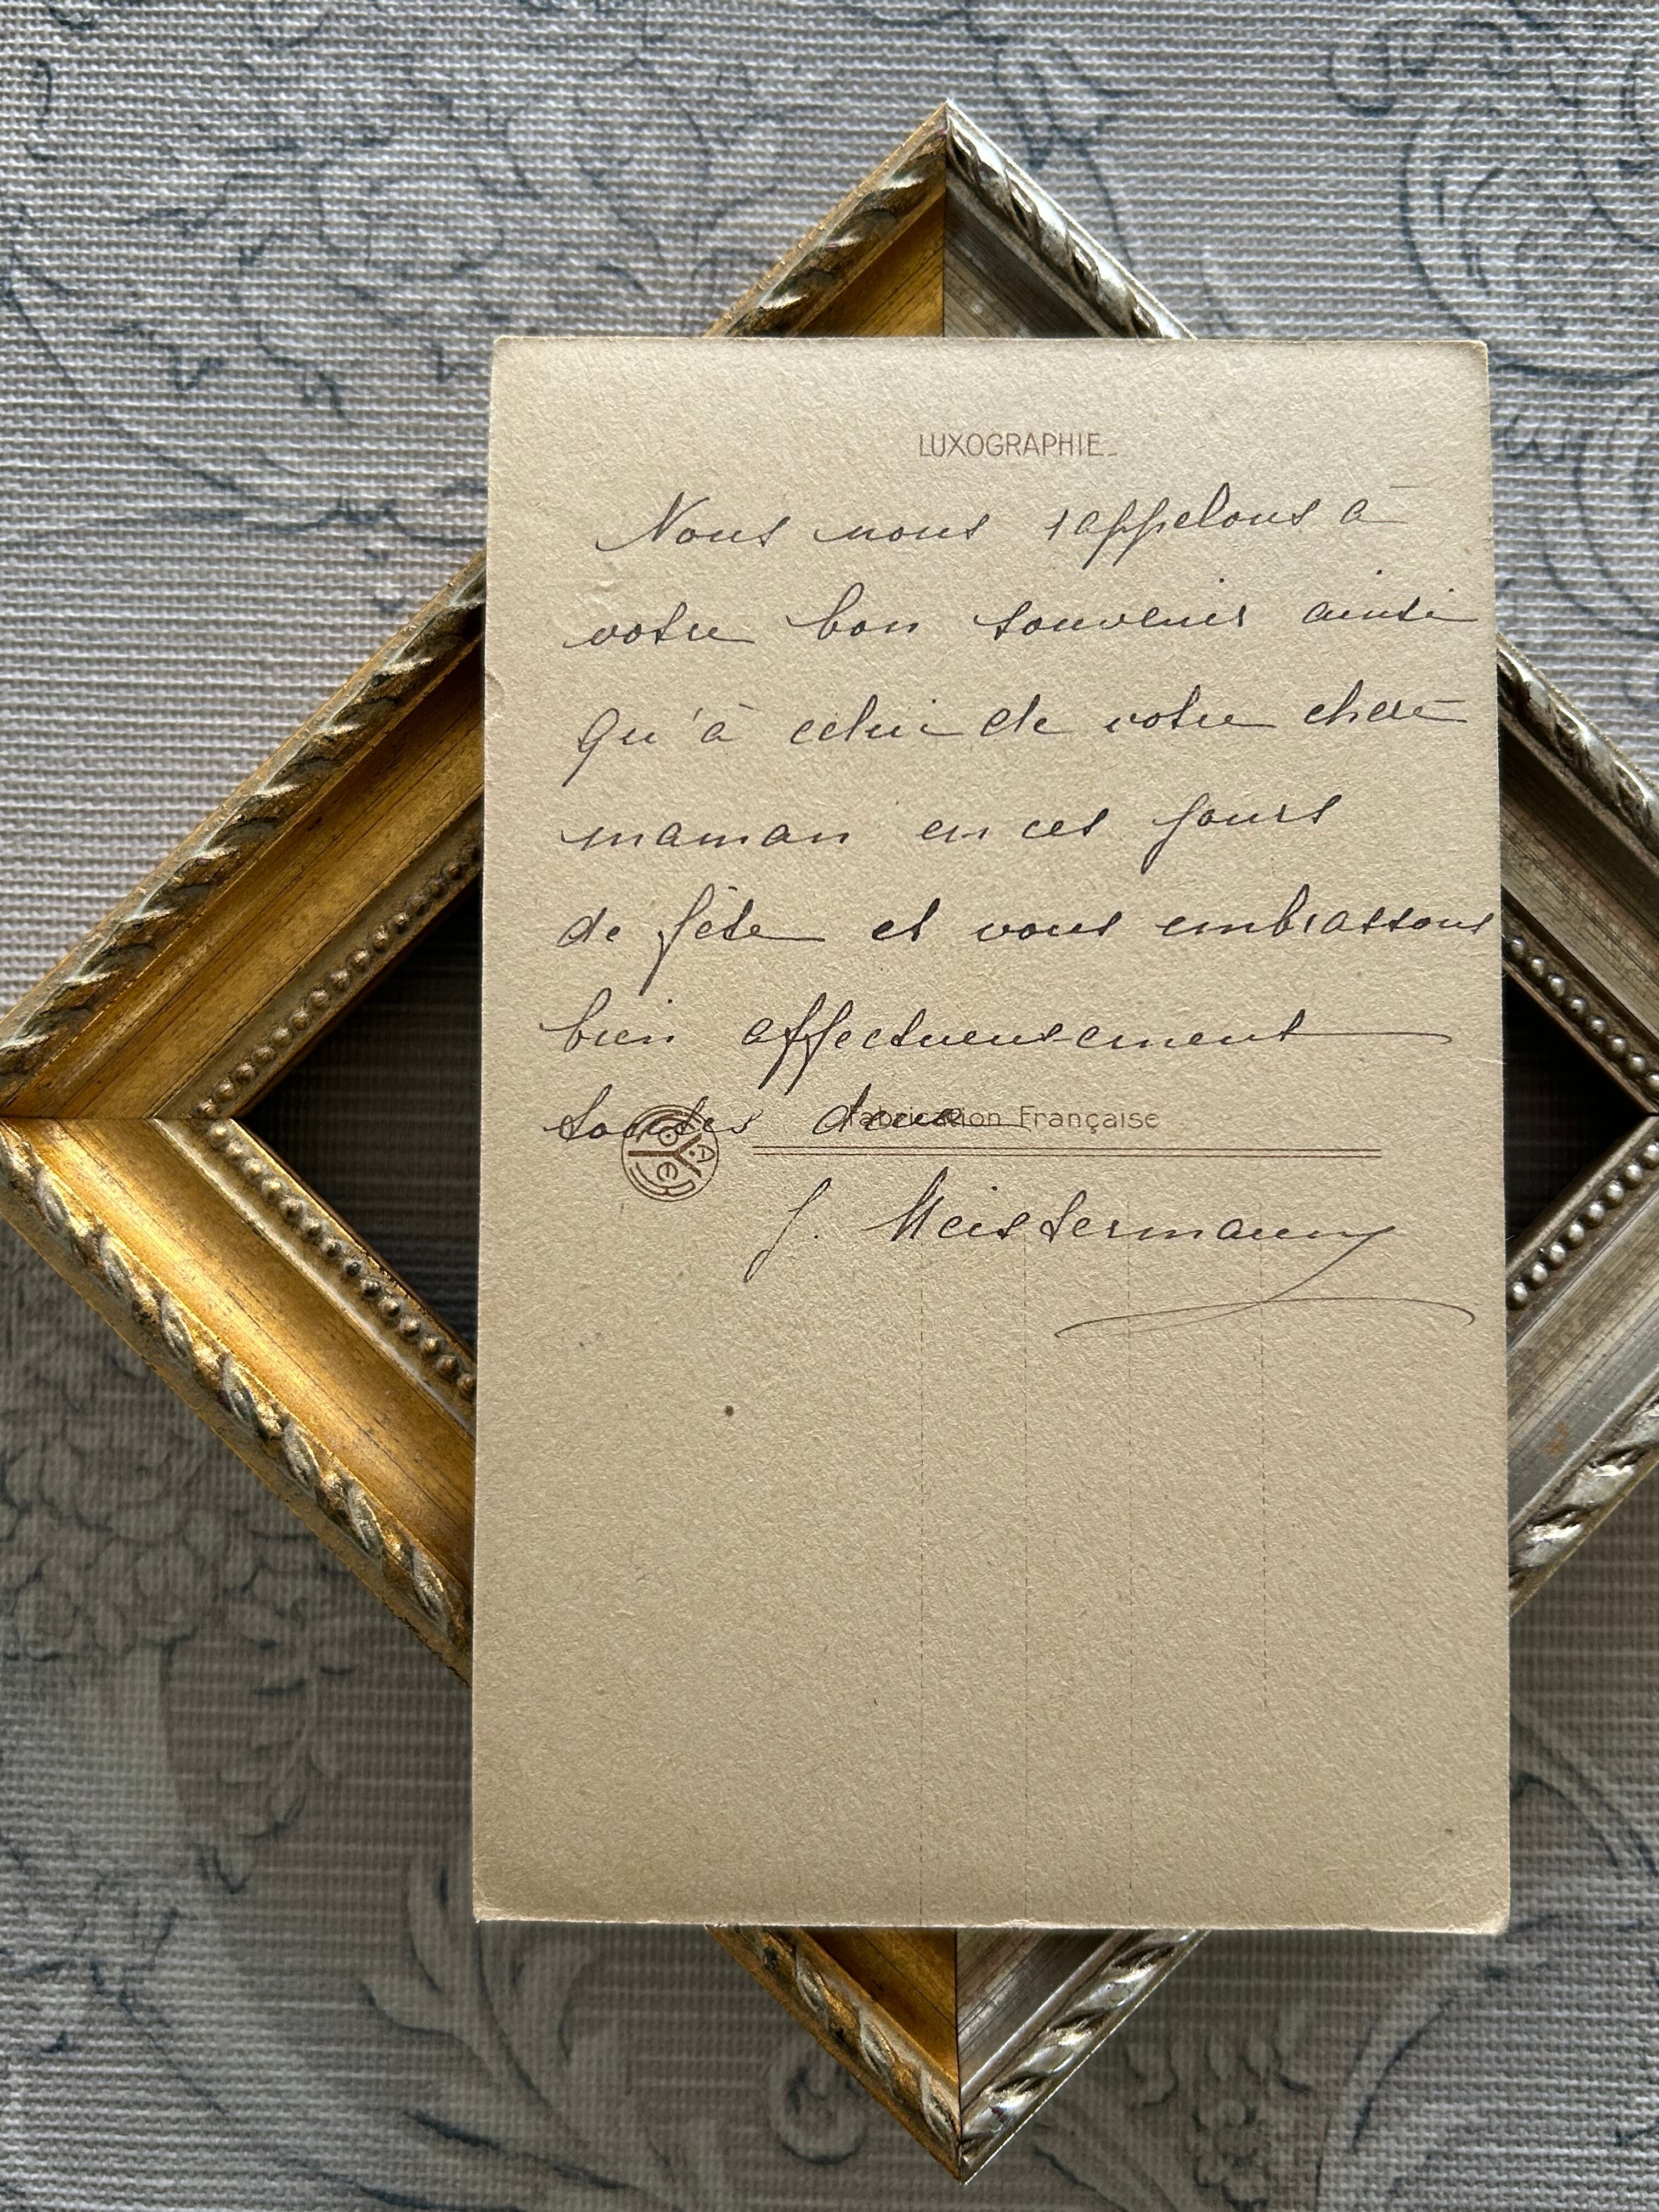 LUXOGRAPHIE
Nous nous rappelons à
votre bon souvenir ainsi
qu'à celui de votre chère
maman en ces jours
de fête et vous embrassons
bien affectueusement
toutes deux
Fabrication Française
J. Meistermann